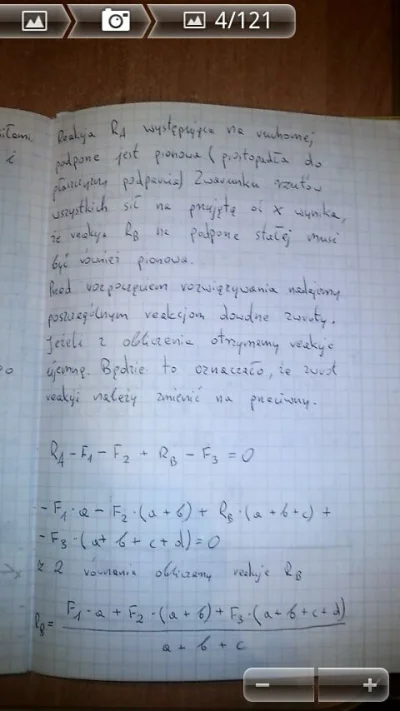 4/121
siłami
i
Reakcja R_A występująca na ruchomej
podporze jest pionowa (prostopadła do
płaszczyzny podparcia) Z warunku rzutów
wszystkich sił na przyjętą oś x wynika,
że reakcja R_B na podporze stałej musi
być również pionowa.
Przed rozpoczęciem rozwiązywania nadajemy
poszczególnym reakcjom dowolne zwroty.
Jeżeli z obliczenia otrzymamy reakcje
ujemną. Będzie to oznaczało, że zwrot
reakcji należy zmienić na przeciwny.
R_A - F_1 - F_2 + R_B - F_3 = 0
- F_1 · a - F_2 · (a + b) + R_B · (a + b + c) +
- F_3 · (a + b + c + d) = 0
z 2 równania obliczamy reakcje R_B
R_B = F_1 · a + F_2 · (a + b) + F_3 · (a + b + c + d)
a + b + c
- +